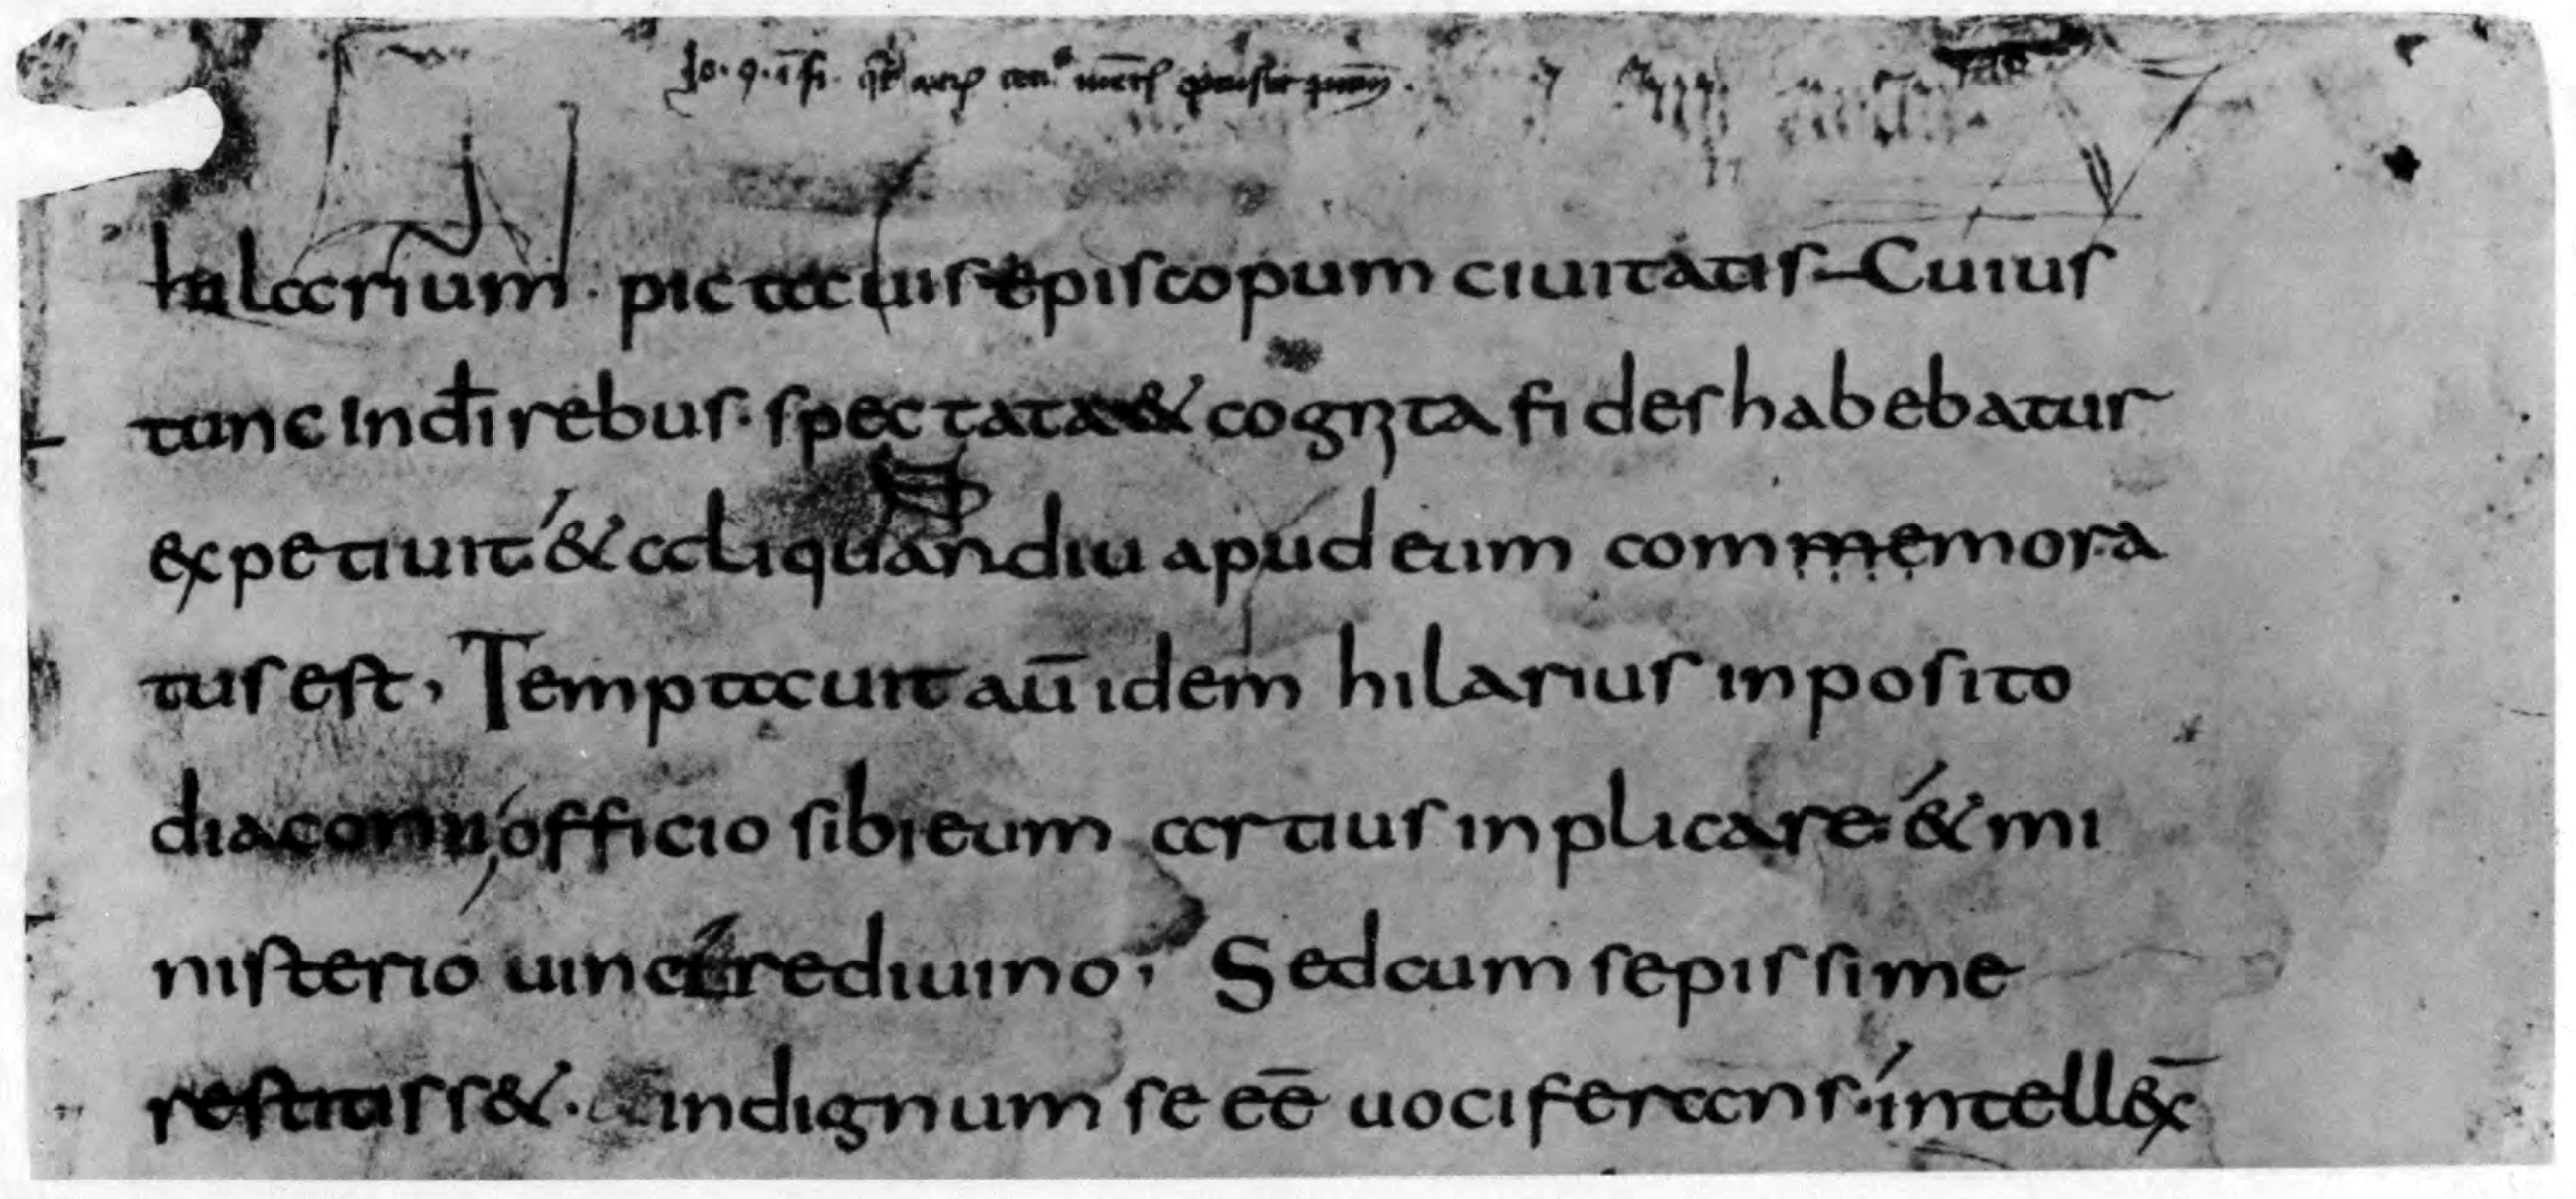 hilarium · pictauis episcopum ciuitatis– Cuius
tunc in dī rebus · spectata & cognita fides habebatur
expetiuit · & aliquandiu apud eum commemora
tus est, Temptauit aū idem hilarius inposito
diaconii officio sibi eum artius inplicare · & mi
nisterio uincire diuino; Sed cum sepissime
restitiss& · indignum se eē uociferans · intellex̄